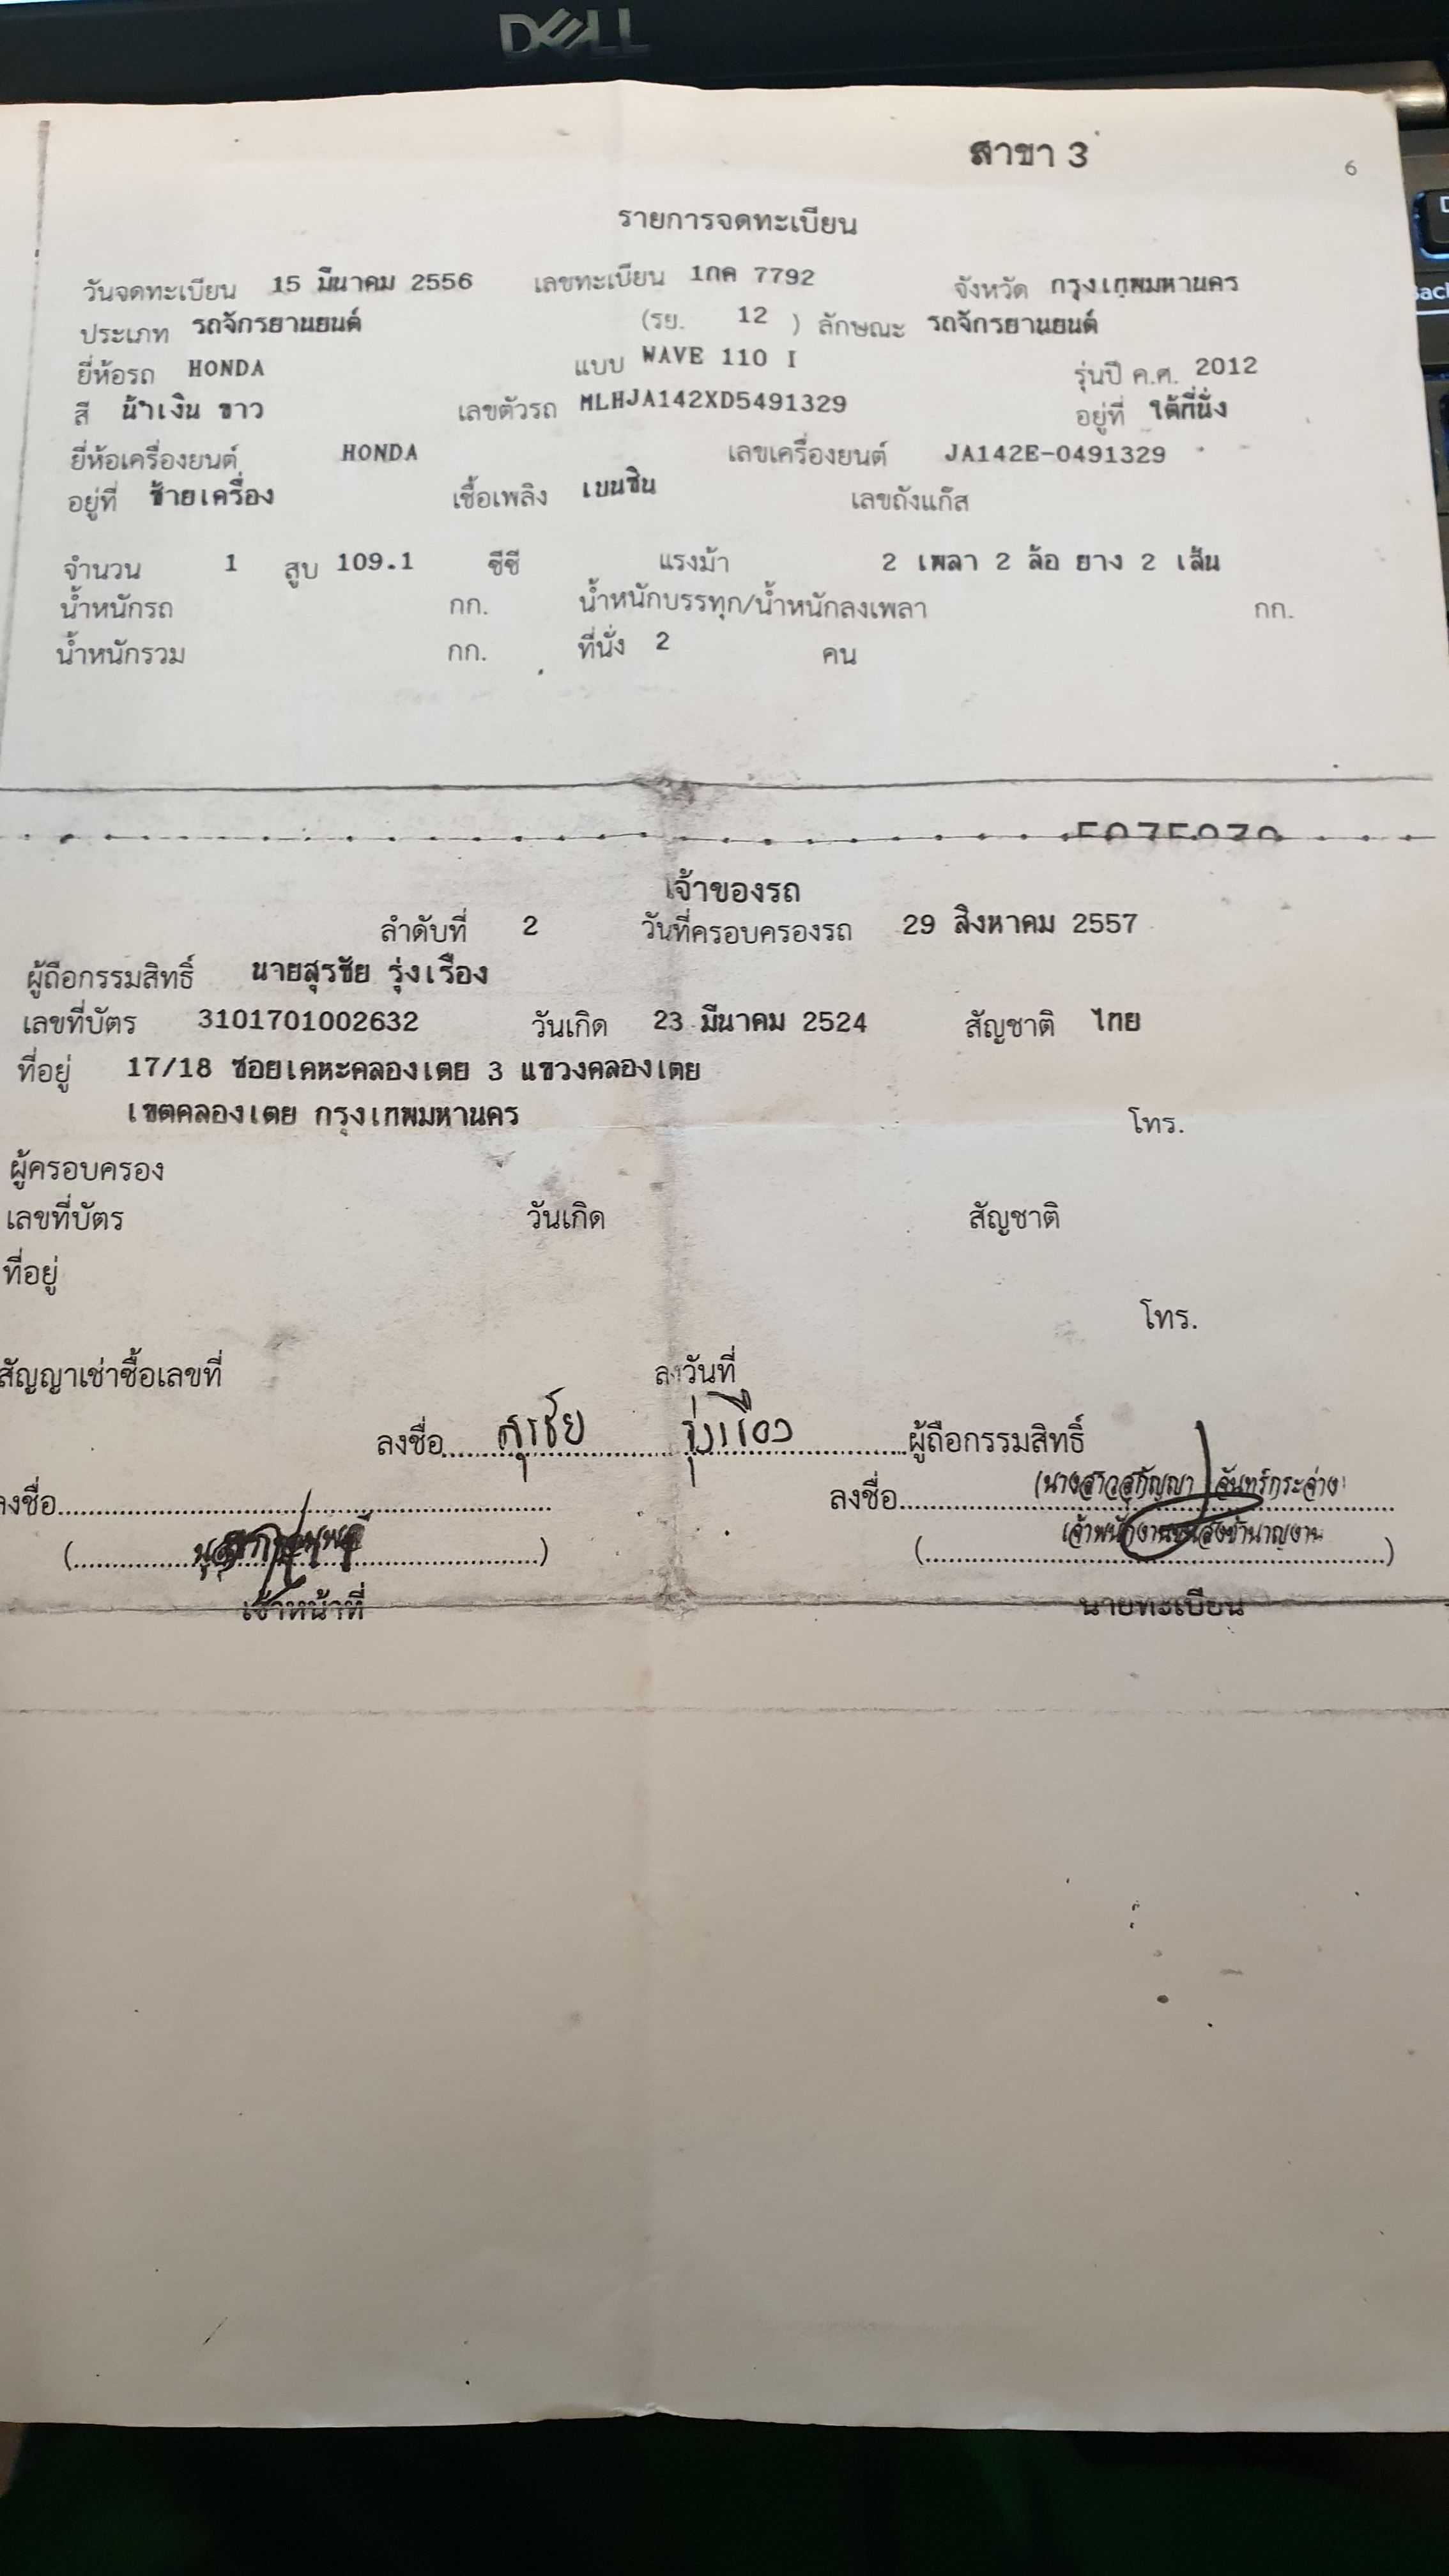 DELL
สาขา 3
6
รายการจดทะเบียน
วันจดทะเบียน 15 มีนาคม 2556 เลขทะเบียน 1กค 7792 จังหวัด กรุงเทพมหานคร
ประเภท รถจักรยานยนต์ (รย. 12 ) ลักษณะ รถจักรยานยนต์
ยี่ห้อรถ HONDA แบบ WAVE 110 I รุ่นปี ค.ศ. 2012
สี น้ำเงิน ขาว เลขตัวรถ MLHJA142XD5491329 อยู่ที่ ใต้ที่นั่ง
ยี่ห้อเครื่องยนต์ HONDA เลขเครื่องยนต์ JA142E-0491329
อยู่ที่ ซ้ายเครื่อง เชื้อเพลิง เบนซิน เลขถังแก๊ส
จำนวน 1 สูบ 109.1 ซีซี แรงม้า 2 เพลา 2 ล้อ ยาง 2 เส้น
น้ำหนักรถ กก. น้ำหนักบรรทุก/น้ำหนักลงเพลา กก.
น้ำหนักรวม กก. ที่นั่ง 2 คน
เจ้าของรถ
ลำดับที่ 2 วันที่ครอบครองรถ 29 สิงหาคม 2557
ผู้ถือกรรมสิทธิ์ นายสุรชัย รุ่งเรือง
เลขที่บัตร 3101701002632 วันเกิด 23 มีนาคม 2524 สัญชาติ ไทย
ที่อยู่ 17/18 ซอยเคหะคลองเตย 3 แขวงคลองเตย
เขตคลองเตย กรุงเทพมหานคร โทร.
ผู้ครอบครอง
เลขที่บัตร วันเกิด สัญชาติ
ที่อยู่
โทร.
สัญญาเช่าซื้อเลขที่ ลงวันที่
ลงชื่อ สุรชัย รุ่งเรือง ผู้ถือกรรมสิทธิ์
(นางสาวสุกัญญา จันทร์กระจ่าง)
ลงชื่อ ลงชื่อ
เจ้าพนักงานขนส่งชำนาญงาน
เจ้าหน้าที่ นายทะเบียน